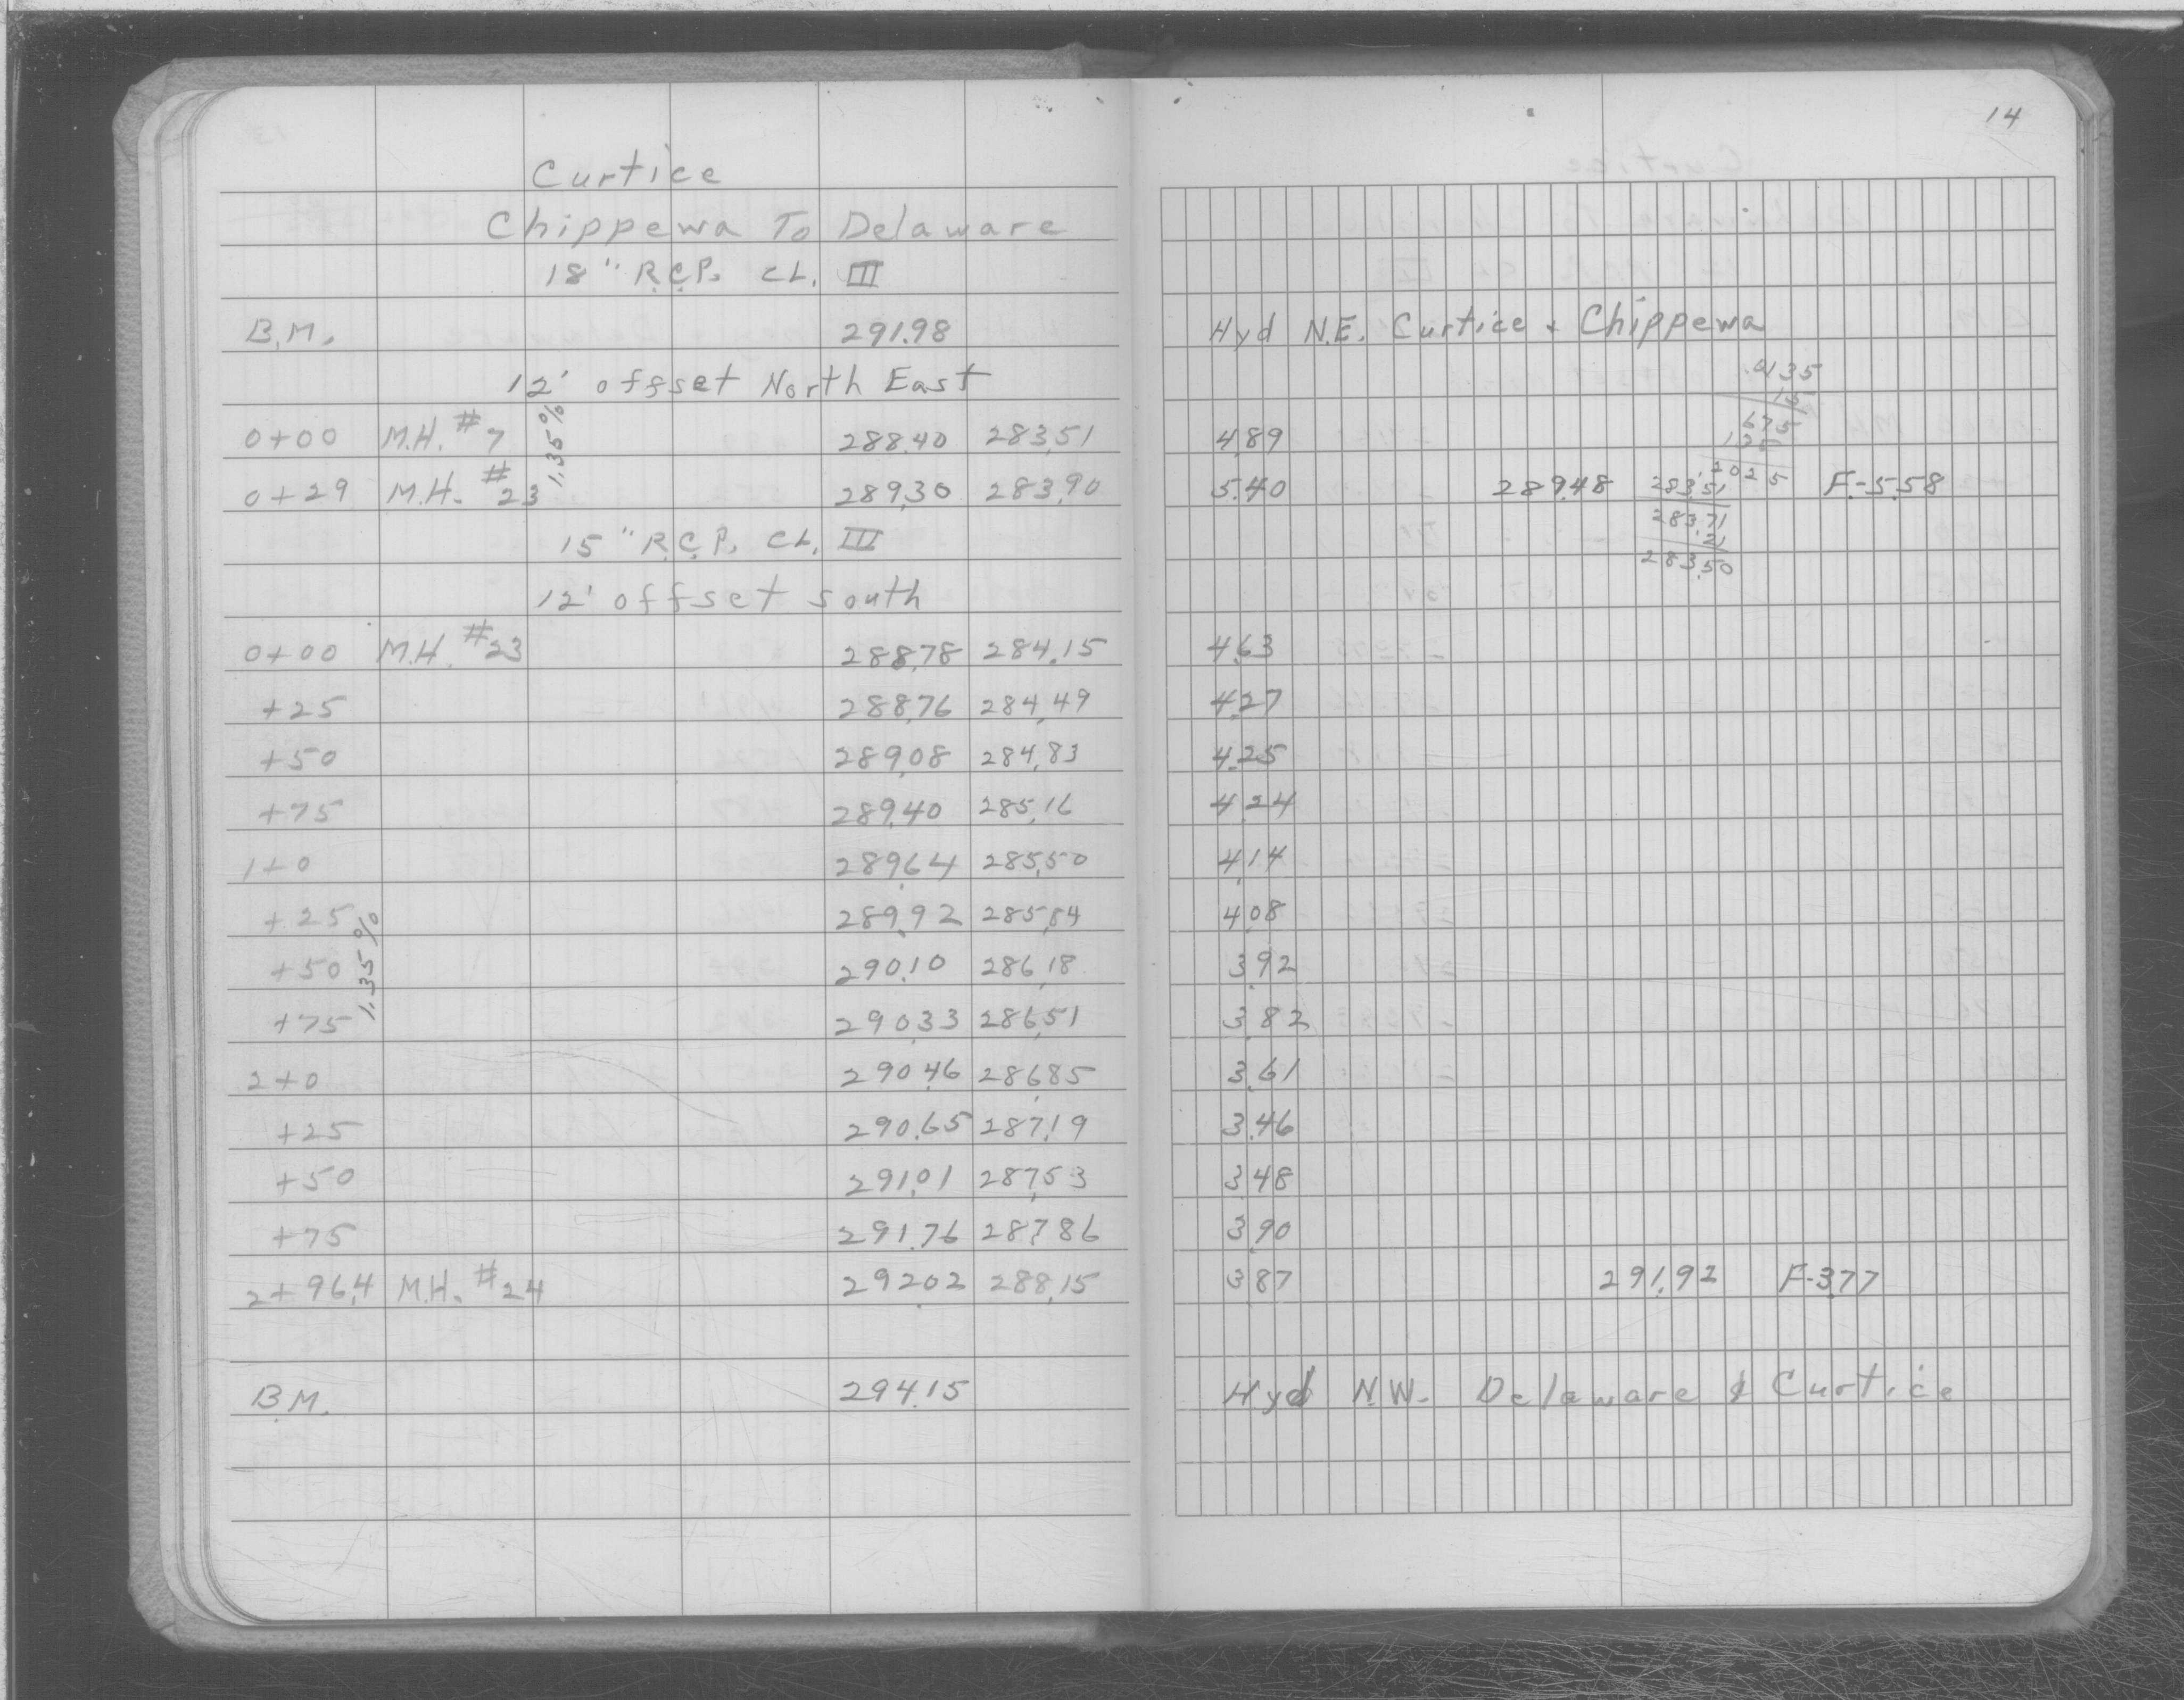 14
Curtice
Chippewa To Delaware
18" R.C.P. CL. III
B.M. 291.98 Hyd N.E. Curtice + Chippewa
12' offset North East
.0135
15
675
135
.2025
0+00 M.H. #7 288.40 283.51 4.89
1.35%
0+29 M.H. #23 289.30 283.90 5.40 289.48 283.51 F.-5.58
283.71
21
283.50
15" R.C.P. CL. III
12' offset south
0+00 M.H. #23 288.78 284.15 4.63
+25 288.76 284.49 4.27
+50 289.08 284.83 4.25
+75 289.40 285.16 4.24
1+0 289.64 285.50 4.14
+25 289.92 285.84 4.08
1.35%
+50 290.10 286.18 3.92
+75 290.33 286.51 3.82
2+0 290.46 286.85 3.61
+25 290.65 287.19 3.46
+50 291.01 287.53 3.48
+75 291.76 287.86 3.90
2+96.4 M.H. #24 292.02 288.15 3.87 291.92 F-3.77
B.M. 294.15 Hyd N.W. Delaware & Curtice